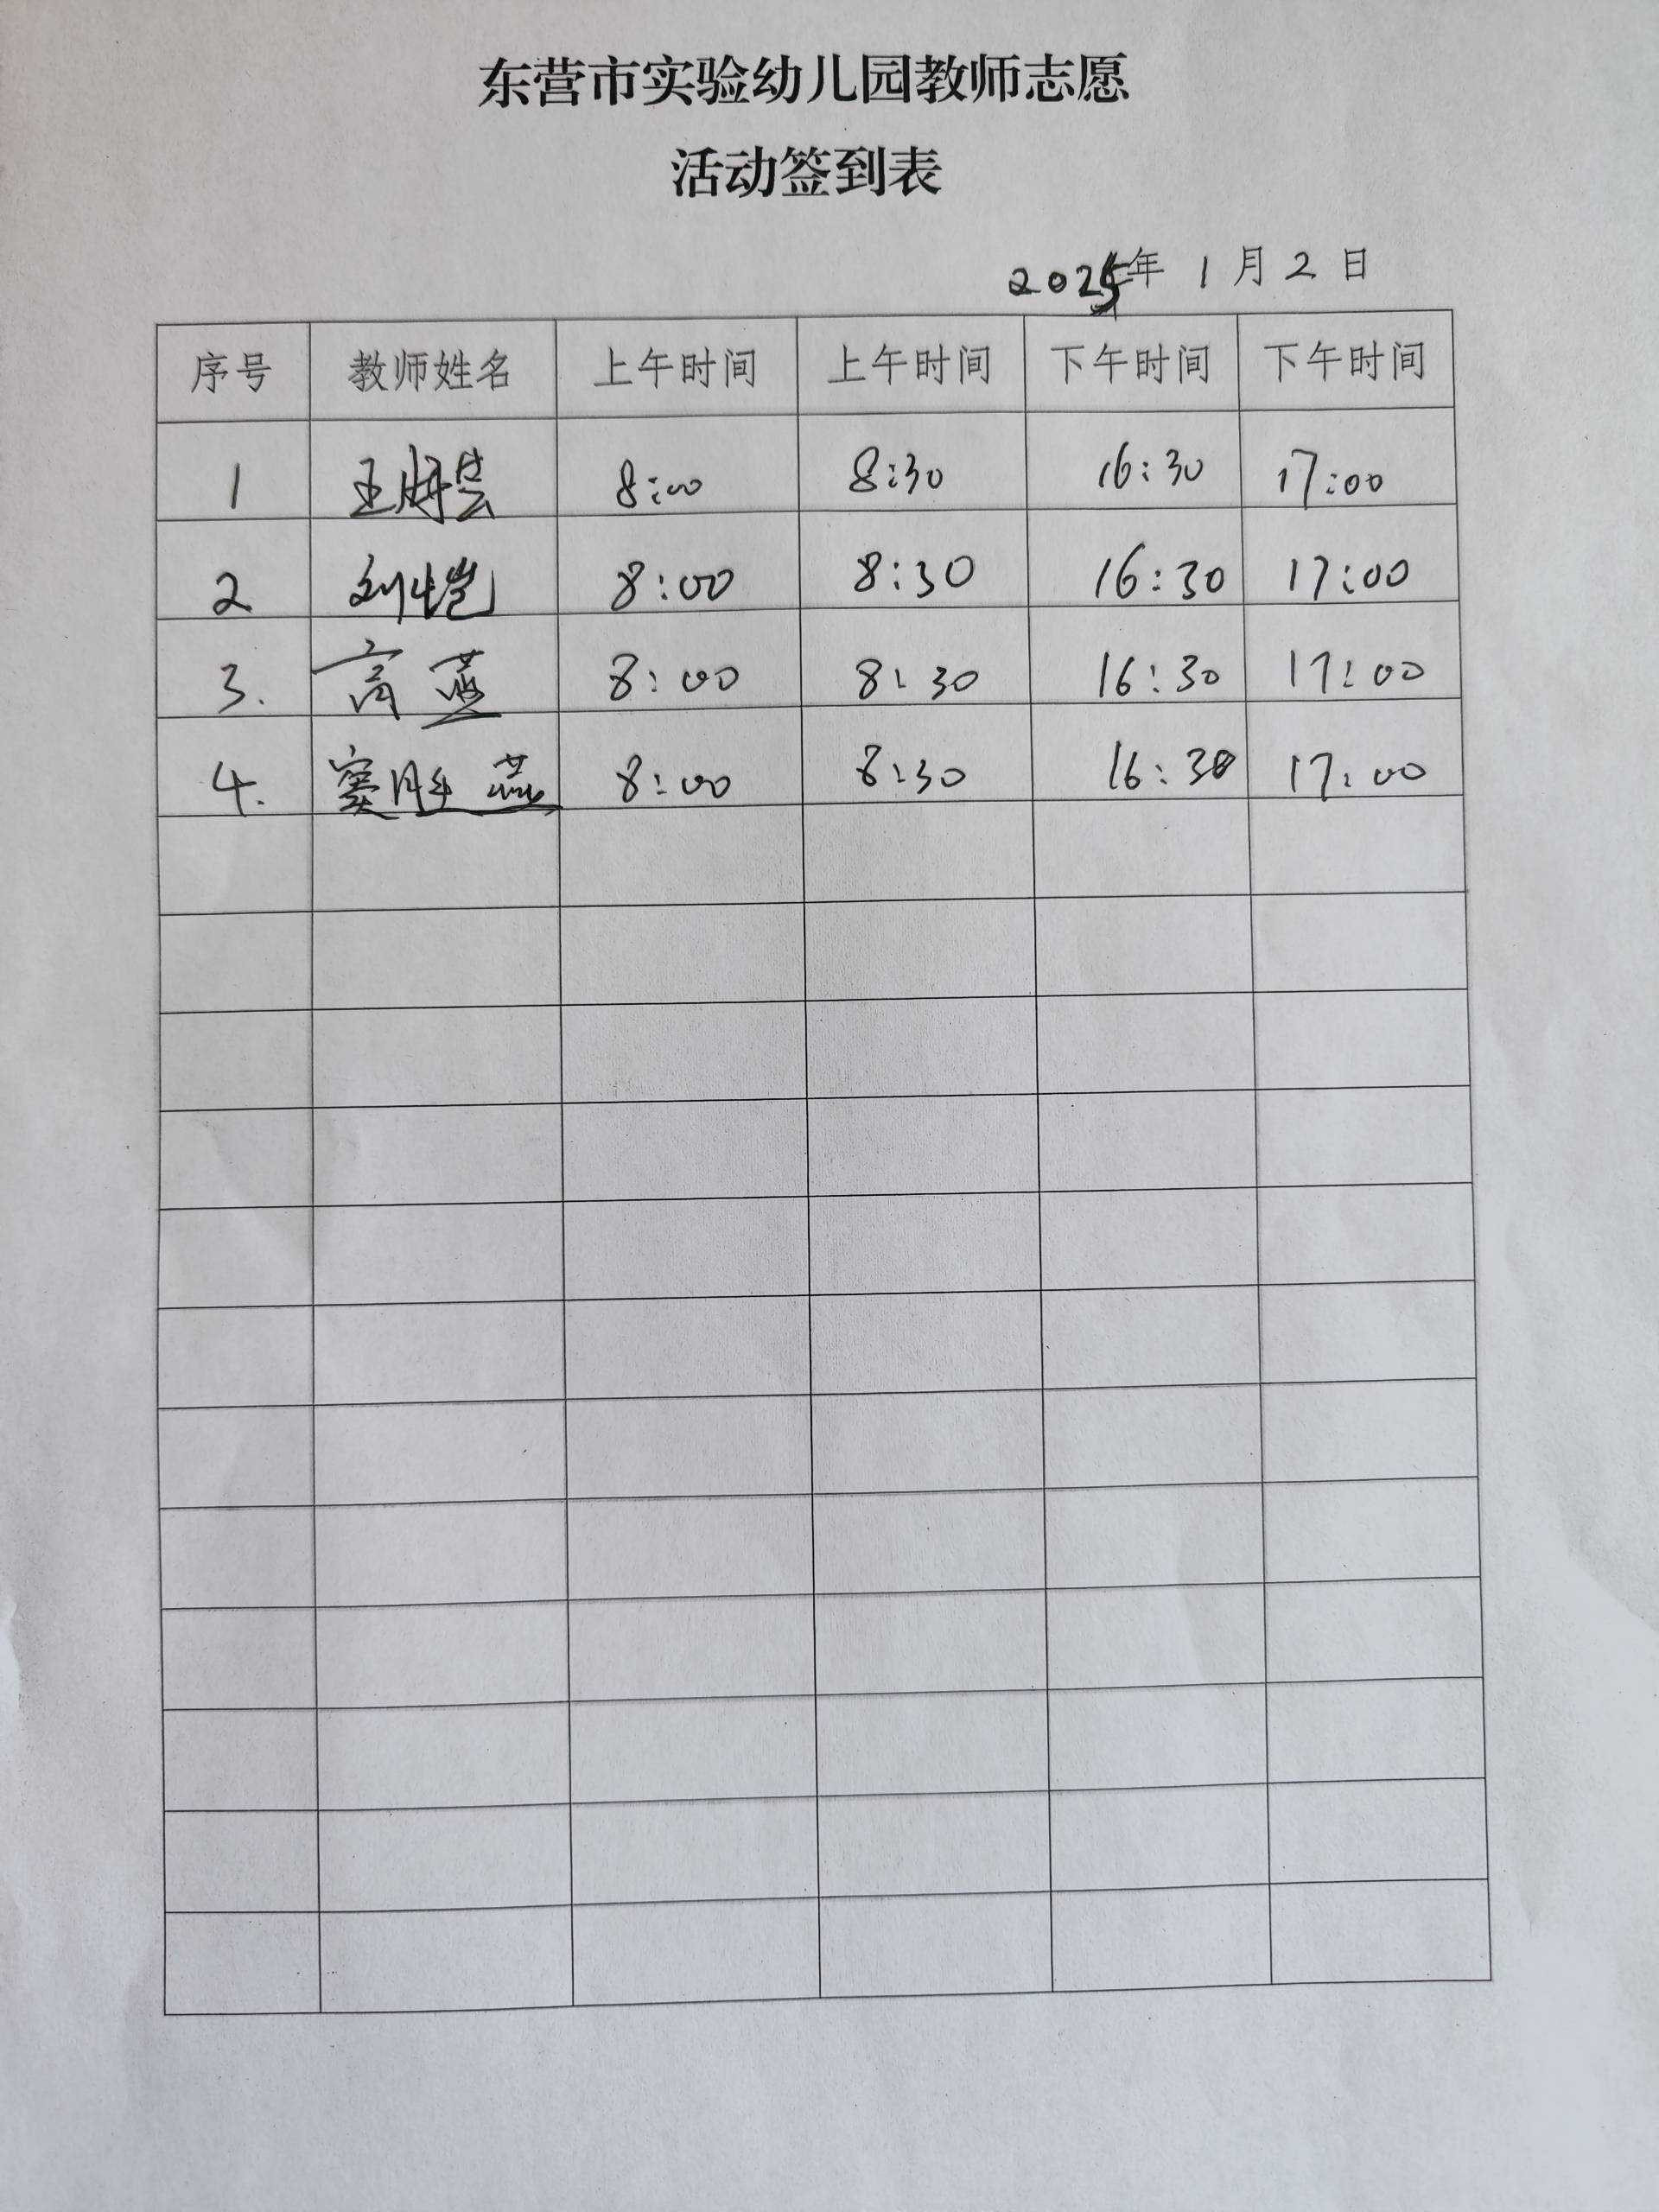 东营市实验幼儿园教师志愿
活动签到表
2025年 1月2日
序号 教师姓名 上午时间 上午时间 下午时间 下午时间
1 王 8:00 8:30 16:30 17:00
2 刘恺 8:00 8:30 16:30 17:00
3. 高燕 8:00 8:30 16:30 17:00
4. 窦胜燕 8:00 8:30 16:30 17:00